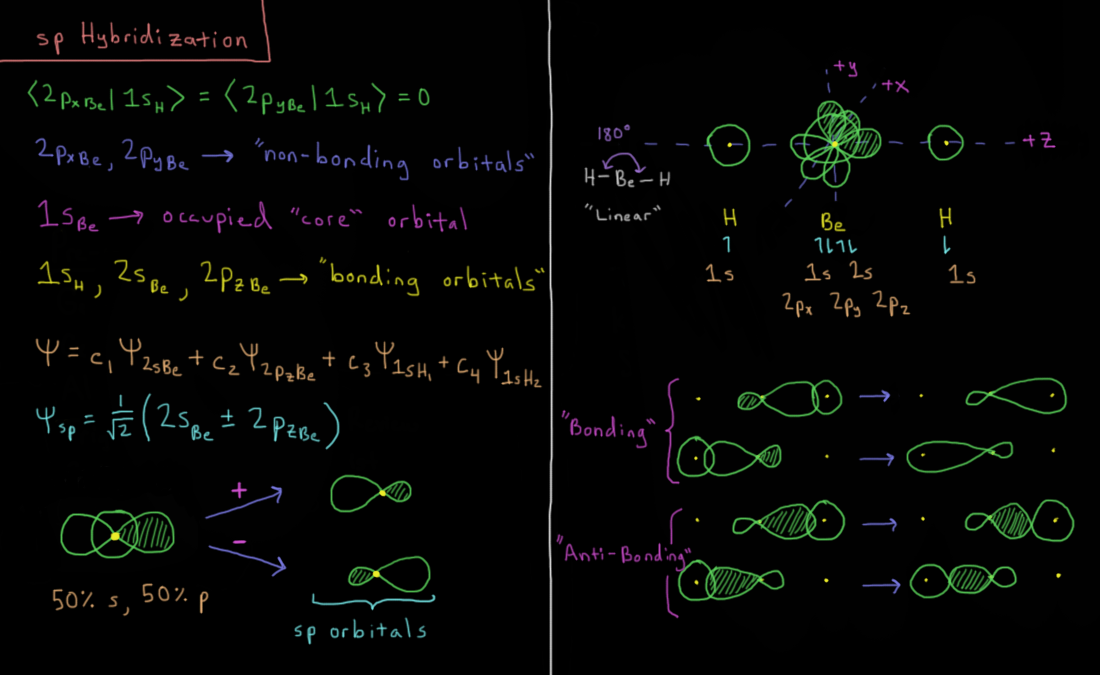 sp Hybridization
⟨2pxBe|1sH⟩ = ⟨2pyBe|1sH⟩ = 0
2pxBe, 2pyBe → "non-bonding orbitals"
1sBe → occupied "core" orbital
1sH, 2sBe, 2pzBe → "bonding orbitals"
Ψ = c₁Ψ2sBe + c₂Ψ2pzBe + c₃Ψ1sH₁ + c₄Ψ1sH₂
Ψsp = 1/√2 (2sBe ± 2pzBe)
+
−
50% s, 50% p
sp orbitals
+y
+x
+z
180°
H–Be–H
"Linear"
H Be H
↿ ↿⇂↿⇂ ⇂
1s 1s 2s 1s
2px 2py 2pz
"Bonding"
"Anti-Bonding"